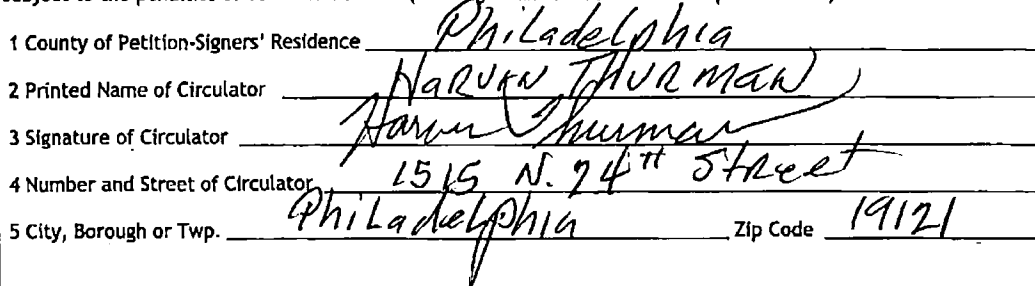 1 County of Petition-Signers' Residence Philadelphia
2 Printed Name of Circulator HARVEN THURMAN
3 Signature of Circulator Thurman
4 Number and Street of Circulator 1515 N. 24th Street
5 City, Borough or Twp. Philadelphia Zip Code 19121